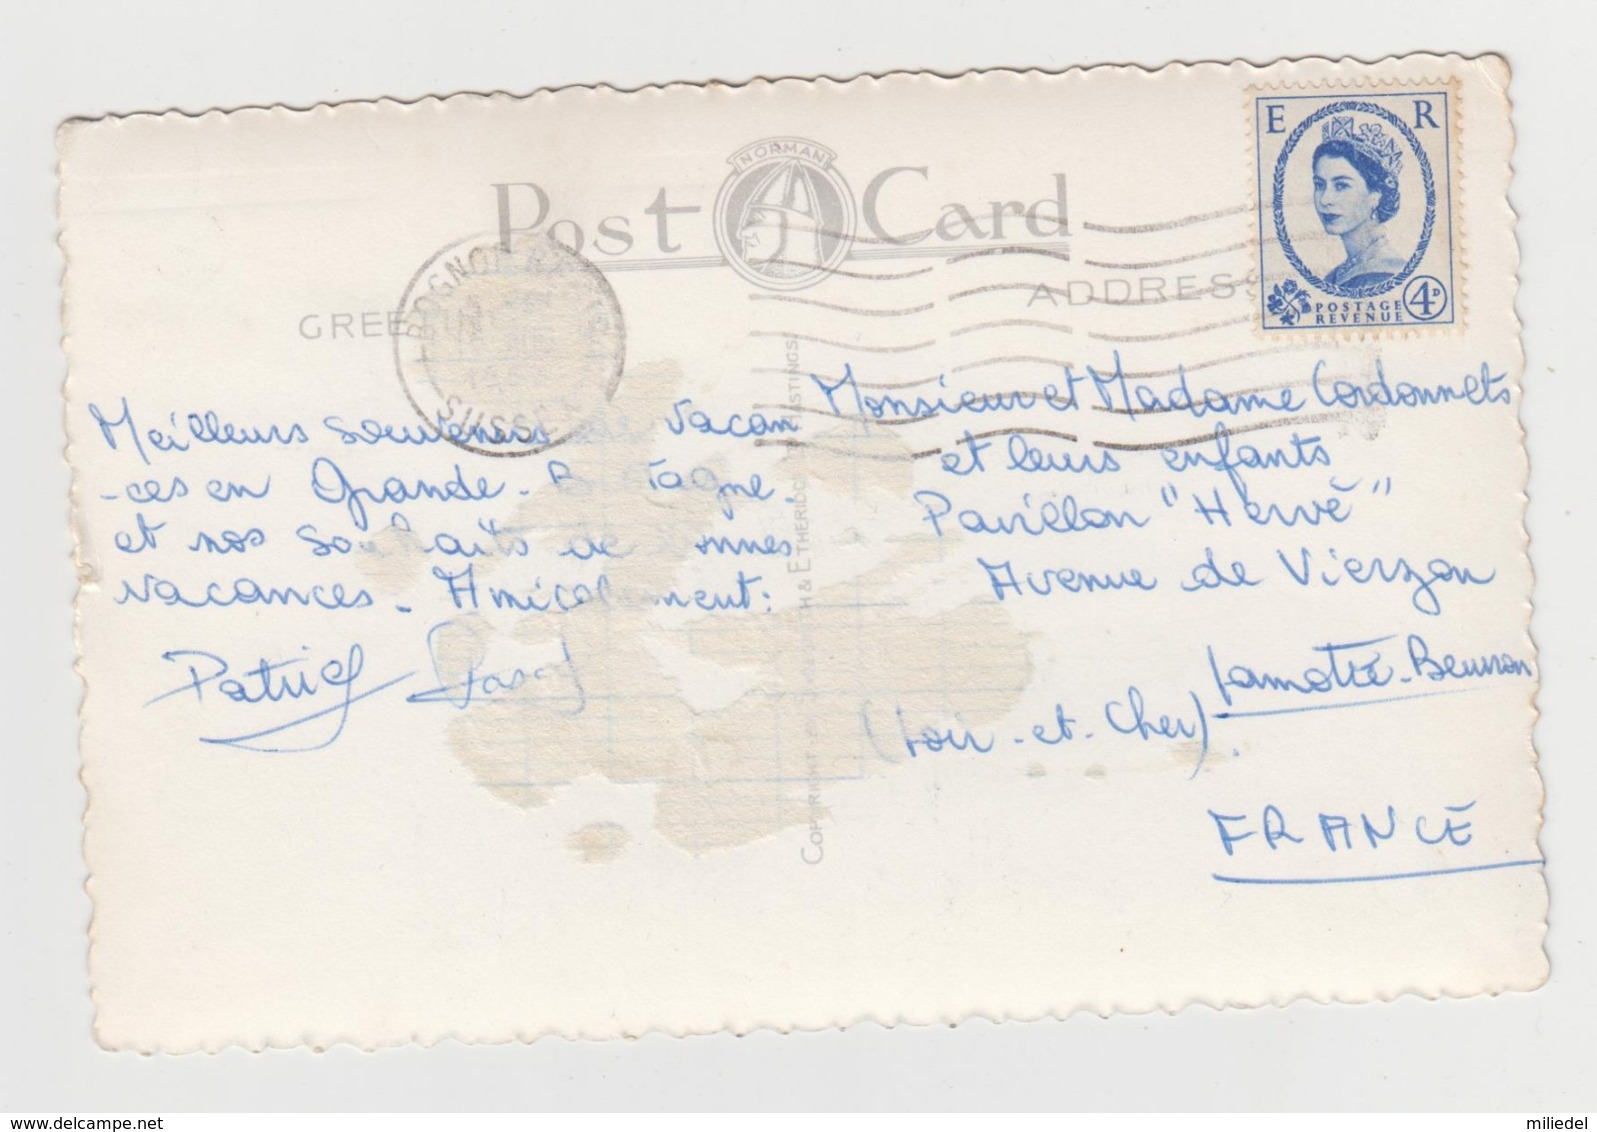 Post Card
NORMAN
E R
POSTAGE
REVENUE
4D
BOGNOR
SUSSEX
GREE
ADDRESS
Meilleurs souvenirs de vacan
-ces en Grande-B tagne
et nos souhaits de bonnes
vacances - Amicalement:
Patrick Pascal
COPYRIGHT
& ETHERIDGE HASTINGS
Monsieur et Madame Cordonnets
et leurs enfants
Pavillon "Hervé"
Avenue de Vierzon
Lamotte-Beuvron
(Loir-et-Cher).
FRANCE
www.delcampe.net
miliedel